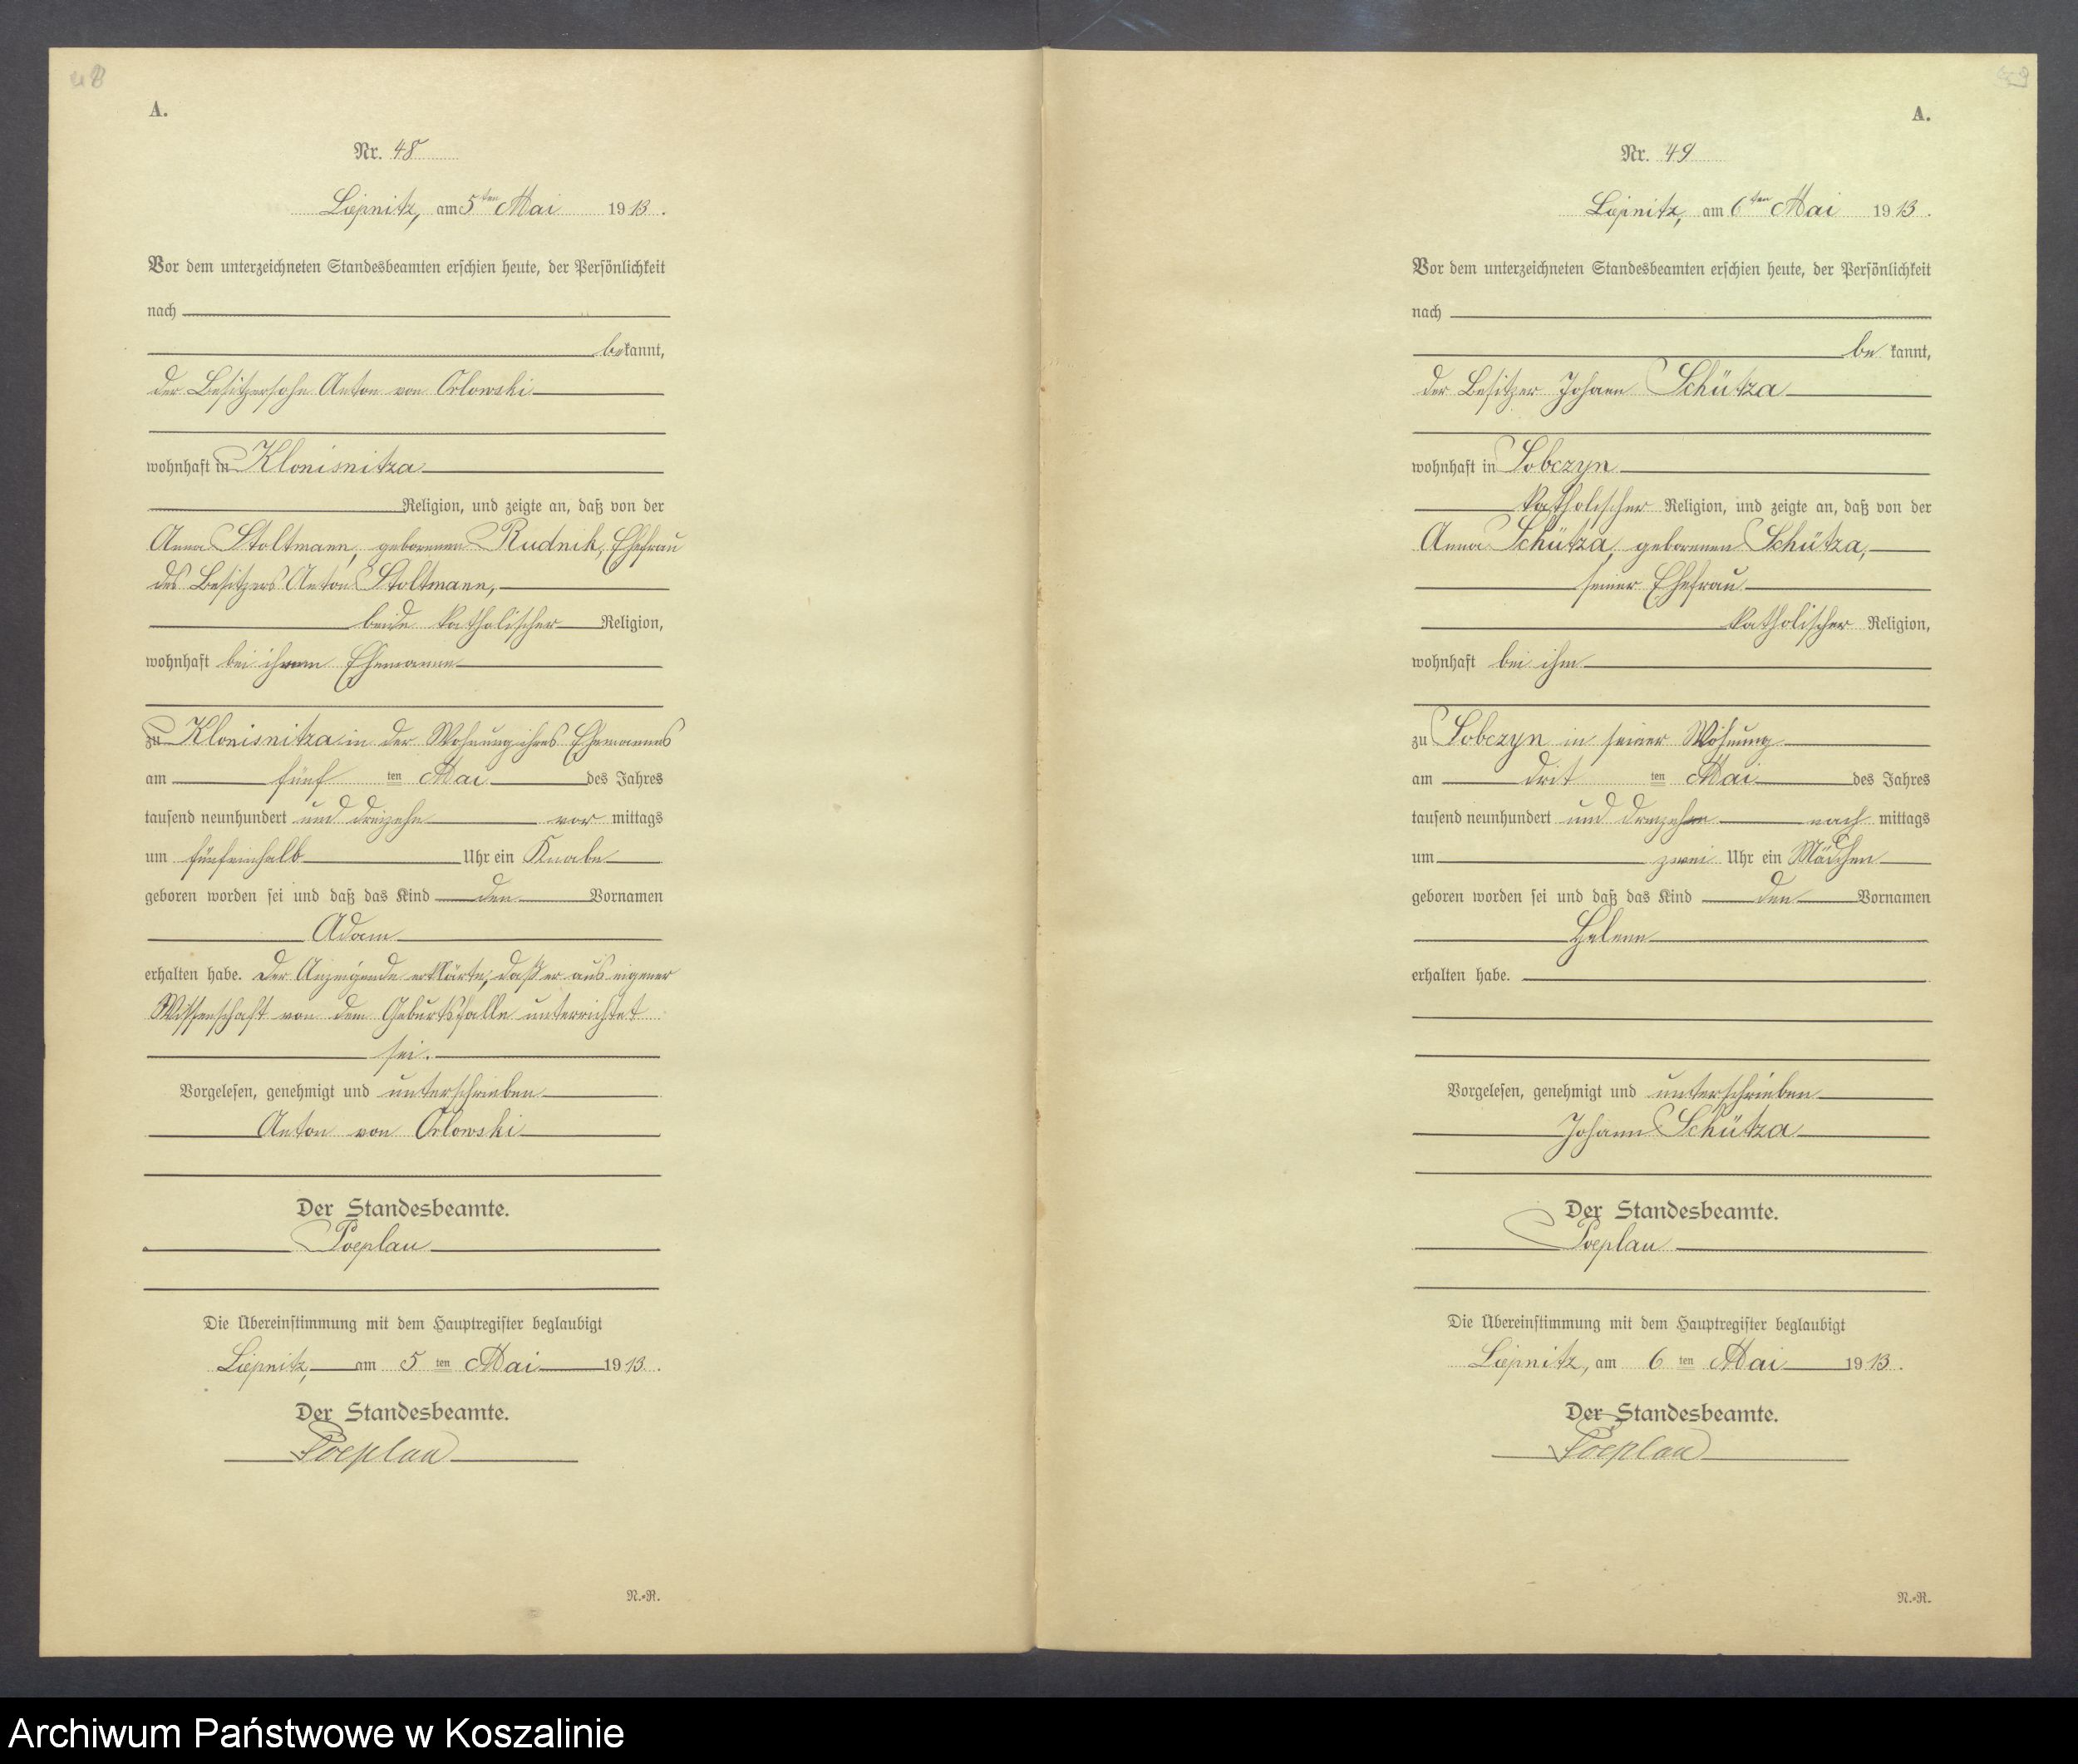 48
A.
Nr. 48
Liepnitz, am 5ten Mai 1913.
Vor dem unterzeichneten Standesbeamten erschien heute, der Persönlichkeit
nach
bekannt,
der Besitzersohn Anton von Orlowski
wohnhaft in Klonisnitza
Religion, und zeigte an, daß von der
Anna Stoltmann, geborenen Rudnik, Ehefrau
des Besitzers Anton Stoltmann,
beide katholischer Religion,
wohnhaft bei ihrem Ehemanne
zu Klonisnitza in der Wohnung ihres Ehemannes
am fünf ten Mai des Jahres
tausend neunhundert und dreizehn vor mittags
um fünfeinhalb Uhr ein Knabe
geboren worden sei und daß das Kind den Vornamen
Adam
erhalten habe. Der Anzeigende erklärte, daß er aus eigener
Wissenschaft von dem Geburtsfalle unterrichtet
sei.
Vorgelesen, genehmigt und unterschrieben
Anton von Orlowski
Der Standesbeamte.
Poeplau
Die Übereinstimmung mit dem Hauptregister beglaubigt
Liepnitz, am 5 ten Mai 1913.
Der Standesbeamte.
Poeplau
N.-R.
A.
Nr. 49
Liepnitz, am 6ten Mai 1913.
Vor dem unterzeichneten Standesbeamten erschien heute, der Persönlichkeit
nach
be kannt,
der Besitzer Johann Schütza
wohnhaft in Sobczyn
katholischer Religion, und zeigte an, daß von der
Anna Schütza, geborenen Schütza,
seiner Ehefrau
katholischer Religion,
wohnhaft bei ihm
zu Sobczyn in seiner Wohnung
am drit ten Mai des Jahres
tausend neunhundert und dreizehn nach mittags
um zwei Uhr ein Mädchen
geboren worden sei und daß das Kind den Vornamen
Helene
erhalten habe.
Vorgelesen, genehmigt und unterschrieben
Johann Schütza
Der Standesbeamte.
Poeplau
Die Übereinstimmung mit dem Hauptregister beglaubigt
Liepnitz, am 6 ten Mai 1913.
Der Standesbeamte.
Poeplau
N.-R.
Archiwum Państwowe w Koszalinie